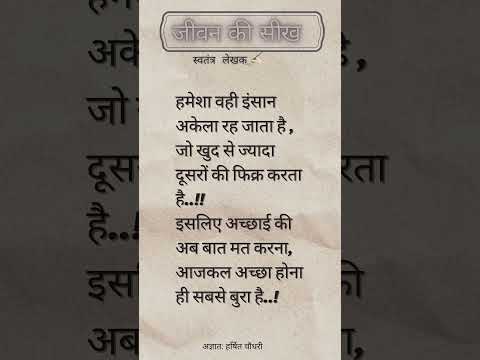 जीवन की सीख
स्वतंत्र लेखक
हमेशा वही इंसान
अकेला रह जाता है ,
जो खुद से ज्यादा
दूसरों की फिक्र करता
है..!!
इसलिए अच्छाई की
अब बात मत करना,
आजकल अच्छा होना
ही सबसे बुरा है..!
अज्ञात: हर्षित चौधरी